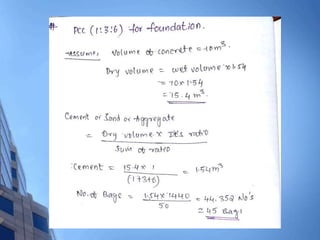 # PCC (1:3:6) for foundation.
Assume, Volume of concrete = 10m³.
Dry volume = wet volume x 1.54
= 10 x 1.54
= 15.4 m³.
Cement or Sand or Aggregate
= Dry volume x It's ratio
Sum of ratio
Cement = 15.4 x 1
(1+3+6)
= 1.54m³
No. of Bags = 1.54 x 1440
50
= 44.352 No's
≃ 45 Bags